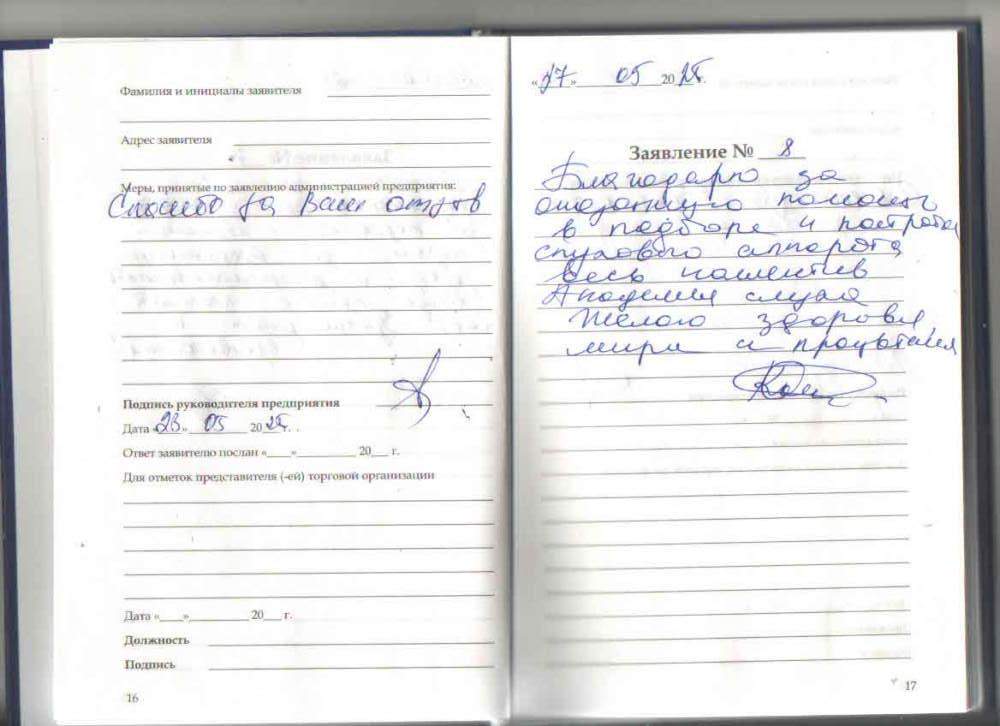 Фамилия и инициалы заявителя
Адрес заявителя
Меры, принятые по заявлению администрацией предприятия:
Спасибо за Ваш отзыв
Подпись руководителя предприятия
Дата «23» 05 2025 г.
Ответ заявителю послан «___» ________ 20___ г.
Для отметок представителя (-ей) торговой организации
Дата «___» ________ 20___ г.
Должность
Подпись
16
«17» 05 2025 г.
Заявление № 8
Благодарю за
оказанную помощь
в подборе и
слухового аппарата
весь
Академии слуха
Желаю здоровья,
мира и процветания
17